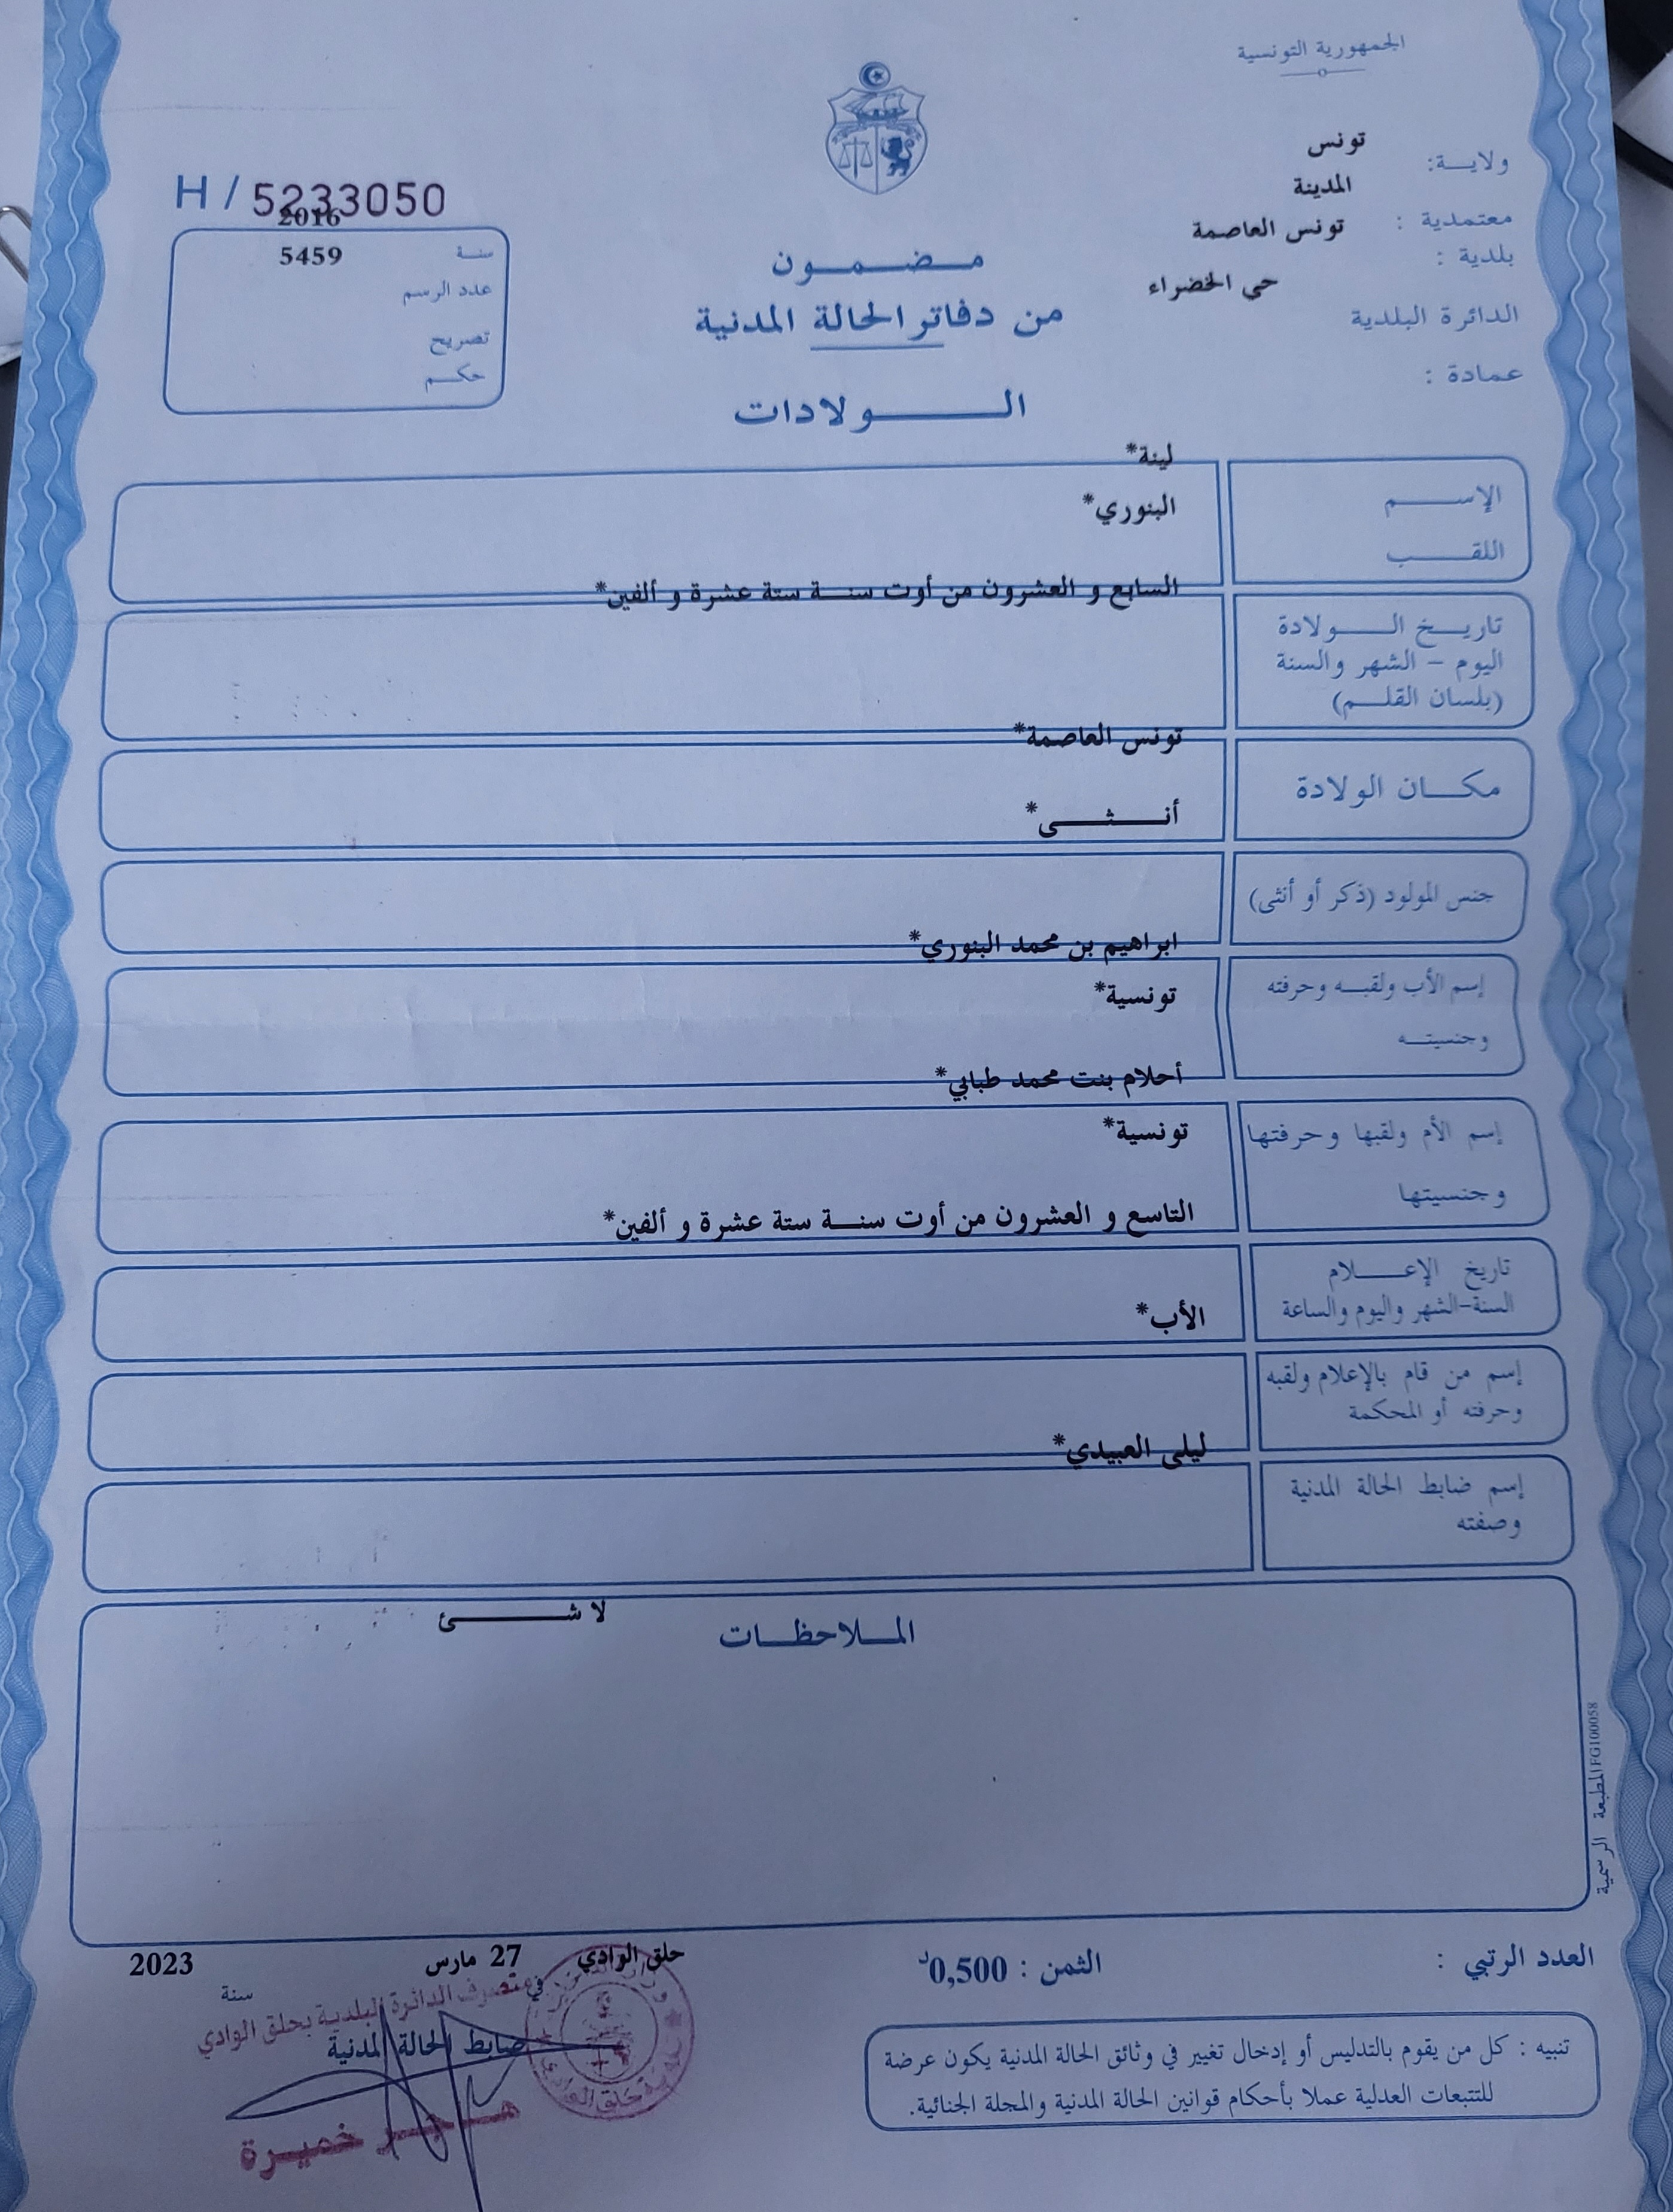 الجمهورية التونسية
ولايـــة: تونس
معتمدية : المدينة
بلدية : تونس العاصمة
الدائرة البلدية حي الخضراء
عمادة :
H / 5233050
سنة 2016
عدد الرسم 5459
تصريح
حكم
مضمون
من دفاتر الحالة المدنية
الولادات
الإسم لينة*
اللقب البنوري*
تاريخ الولادة السابع و العشرون من أوت سنة ستة عشرة و ألفين*
اليوم – الشهر والسنة
(بلسان القلم)
مكان الولادة تونس العاصمة*
جنس المولود (ذكر أو أنثى) أنثى*
إسم الأب ولقبه وحرفته ابراهيم بن محمد البنوري*
وجنسيته تونسية*
إسم الأم ولقبها وحرفتها أحلام بنت محمد طبابي*
وجنسيتها تونسية*
تاريخ الإعلام التاسع و العشرون من أوت سنة ستة عشرة و ألفين*
السنة-الشهر واليوم والساعة
إسم من قام بالإعلام ولقبه الأب*
وحرفته أو المحكمة
إسم ضابط الحالة المدنية ليلى العبيدي*
وصفته
الملاحظات
لا شئ
المطبعة الرسمية FG100058
العدد الرتبي :
الثمن : 0,500د
حلق الوادي في 27 مارس سنة 2023
متصرف الدائرة البلدية بحلق الوادي
ضابط الحالة المدنية
هاجر خميرة
تنبيه : كل من يقوم بالتدليس أو إدخال تغيير في وثائق الحالة المدنية يكون عرضة
للتتبعات العدلية عملا بأحكام قوانين الحالة المدنية والمجلة الجنائية.